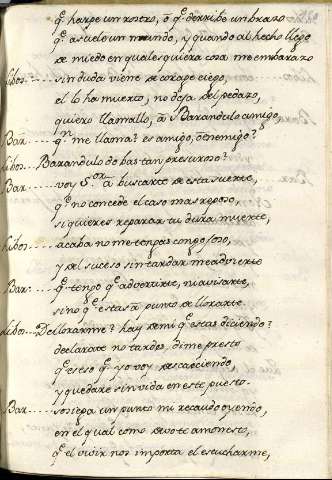 q̃ harpe un rostro, õ q̃ derribe un brazo
q̃ asuele un mundo, y quando al hecho llego
de miedo en qualesquiera cosa me embarazo
Libos.... sin duda viene de corage ciego,
el lo ha muerto, no deja del pedazo,
quiero llamallo, à Barandulo amigo,
Bar..... quien me llama? es amigo, ò enemigo?
Libos... Barandulo do bas tan presuroso?
Bar..... voy S.ᵒʳ à buscarte de esta suerte,
q̃ no concede el caso mas reposo,
si quieres reparar tu dura muerte,
Libos.... acaba no me tengas congojoso,
y del suceso sin tardar me advierte
Bar..... q̃ tengo q̃ advertirte, ni avisarte,
sino q̃ estas à punto de llorarte.
Libos... De llorarme? hay de mi q̃ estas diciendo?
declarate no tardes, dime presto
q̃ es eso q̃ yo voy descaeciendo,
y quedare sin vida en este puesto.
Bar..... sosiega un punto mi recaudo oyendo,
en el qual como devoto amonesto,
q̃ el vivir nos importa el escucharme,